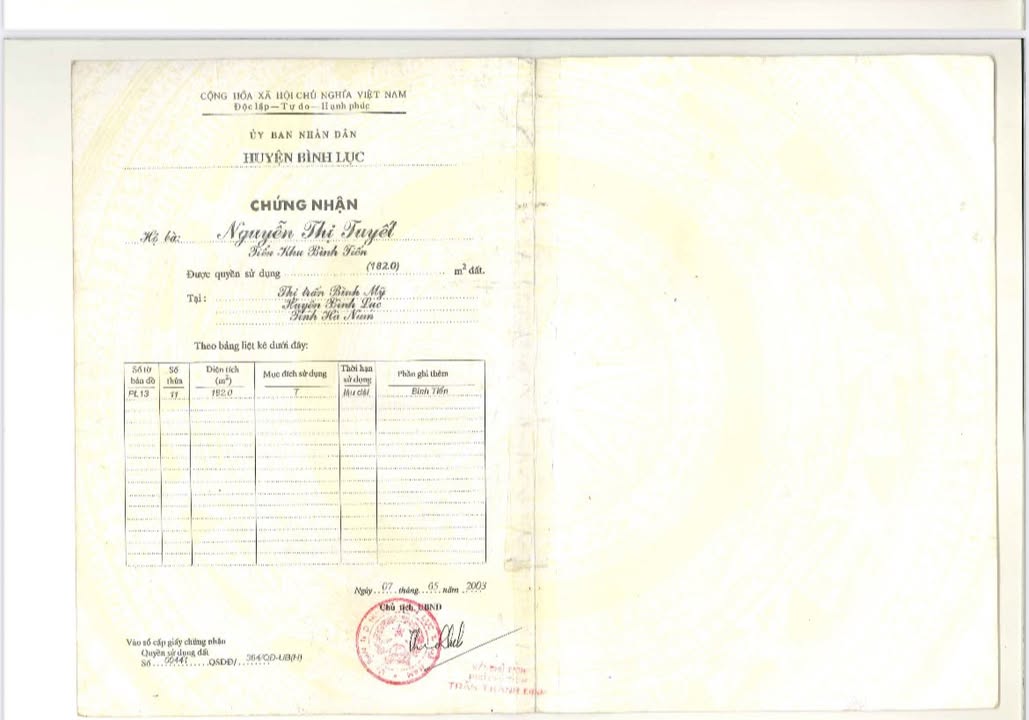 CỘNG HÒA XÃ HỘI CHỦ NGHĨA VIỆT NAM
Độc lập—Tự do—Hạnh phúc
ỦY BAN NHÂN DÂN
HUYỆN BÌNH LỤC
CHỨNG NHẬN
Hộ bà: Nguyễn Thị Tuyết
Tiểu Khu Bình Tiến
Được quyền sử dụng (182.0) m² đất.
Tại: Thị trấn Bình Mỹ
Huyện Bình Lục
Tỉnh Hà Nam
Theo bảng liệt kê dưới đây:
Số tờ bản đồ Số thửa Diện tích (m²) Mục đích sử dụng Thời hạn sử dụng Phần ghi thêm
PL13 11 182.0 T lâu dài Bình Tiến
Ngày 07 tháng 05 năm 2003
Chủ tịch UBND
Vào sổ cấp giấy chứng nhận
Quyền sử dụng đất
Số QSDĐ/ QĐ-UB(H)
TRẦN THANH